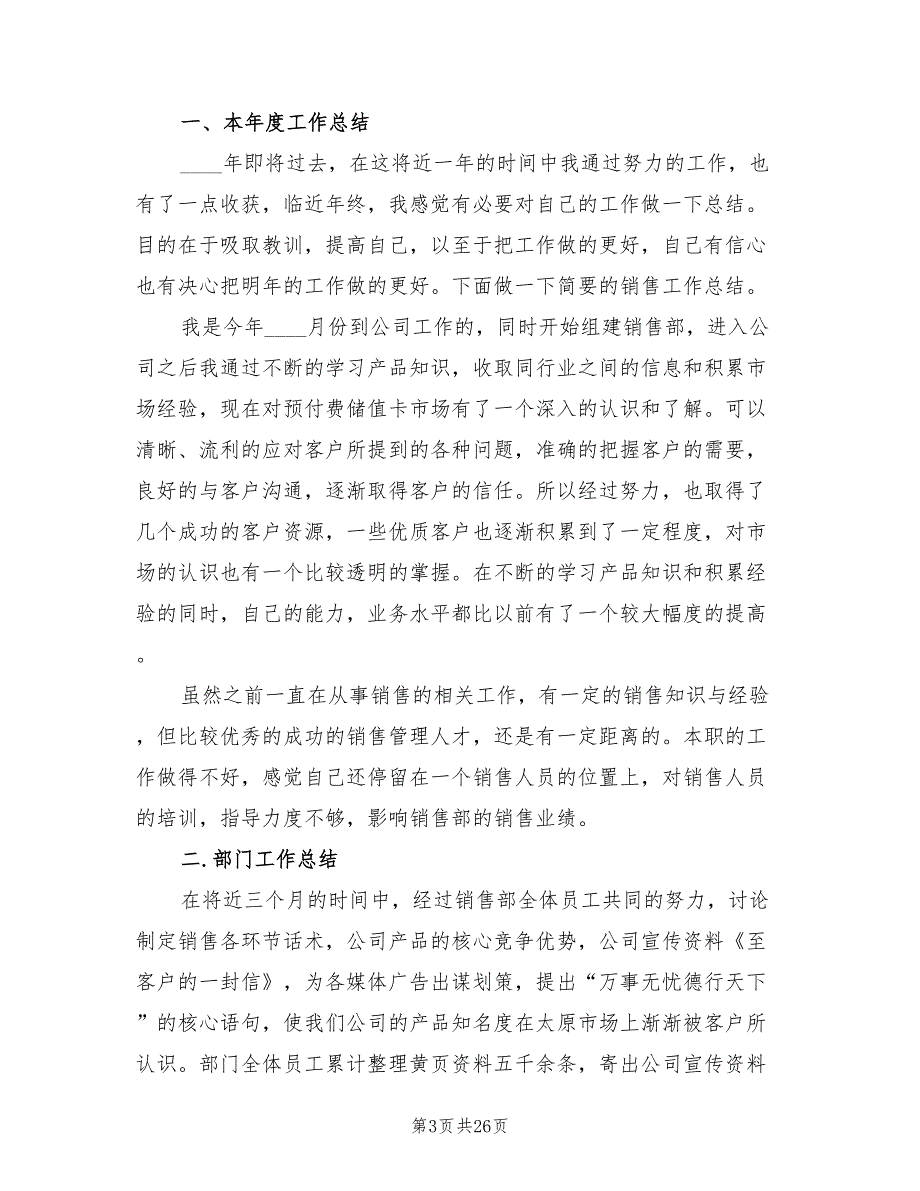 一、本年度工作总结
____年即将过去，在这将近一年的时间中我通过努力的工作，也
有了一点收获，临近年终，我感觉有必要对自己的工作做一下总结。
目的在于吸取教训，提高自己，以至于把工作做的更好，自己有信心
也有决心把明年的工作做的更好。下面做一下简要的销售工作总结。
我是今年____月份到公司工作的，同时开始组建销售部，进入公
司之后我通过不断的学习产品知识，收取同行业之间的信息和积累市
场经验，现在对预付费储值卡市场有了一个深入的认识和了解。可以
清晰、流利的应对客户所提到的各种问题，准确的把握客户的需要，
良好的与客户沟通，逐渐取得客户的信任。所以经过努力，也取得了
几个成功的客户资源，一些优质客户也逐渐积累到了一定程度，对市
场的认识也有一个比较透明的掌握。在不断的学习产品知识和积累经
验的同时，自己的能力，业务水平都比以前有了一个较大幅度的提高
。
虽然之前一直在从事销售的相关工作，有一定的销售知识与经验
，但比较优秀的成功的销售管理人才，还是有一定距离的。本职的工
作做得不好，感觉自己还停留在一个销售人员的位置上，对销售人员
的培训，指导力度不够，影响销售部的销售业绩。
二.部门工作总结
在将近三个月的时间中，经过销售部全体员工共同的努力，讨论
制定销售各环节话术，公司产品的核心竞争优势，公司宣传资料《至
客户的一封信》，为各媒体广告出谋划策，提出“万事无忧德行天下
”的核心语句，使我们公司的产品知名度在太原市场上渐渐被客户所
认识。部门全体员工累计整理黄页资料五千余条，寄出公司宣传资料
第3页共26页